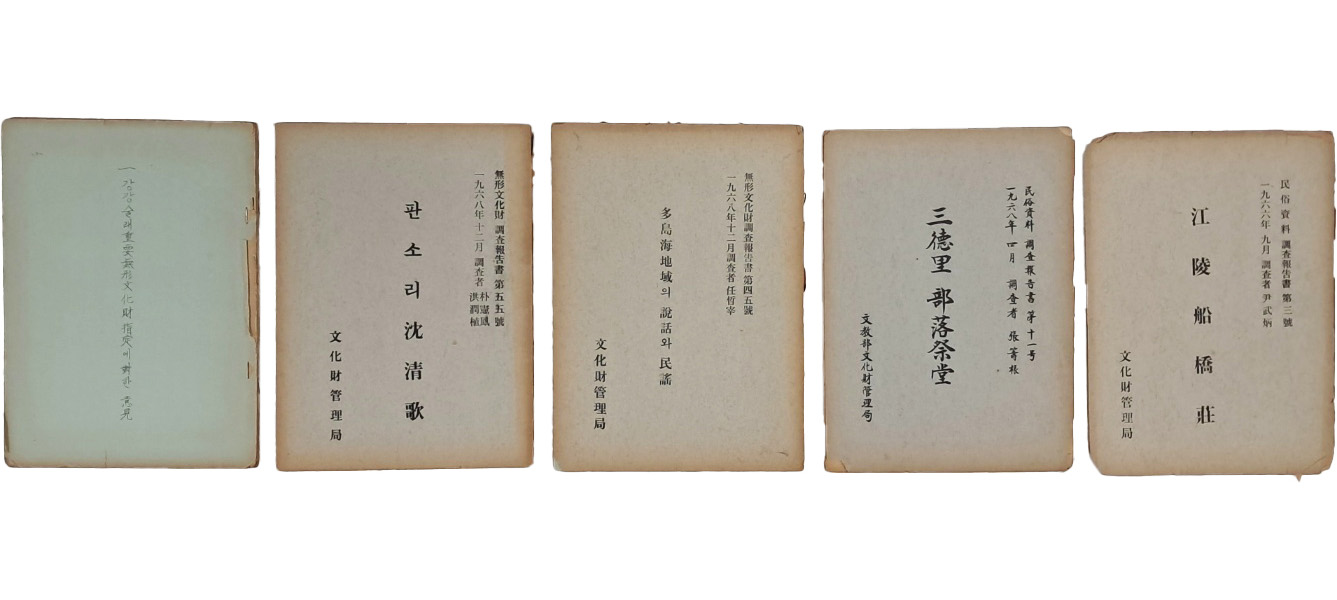 一 강강술래 重要無形文化財指定에 對한 意見
無形文化財 調査報告書 第五五號
一九六八年十二月 調査者 朴憲鳳
洪潤植
판소리 沈淸歌
文化財管理局
無形文化財調査報告書 第四五號
一九六八年十二月調査者 任晳宰
多島海地域의 說話와 民謠
文化財管理局
民俗資料 調査報告書 第十一号
一九六八年 四月 調査者 張籌根
三德里 部落祭堂
文敎部文化財管理局
民俗資料 調査報告書 第三號
一九六六年 九月 調査者 尹武炳
江陵船橋莊
文化財管理局